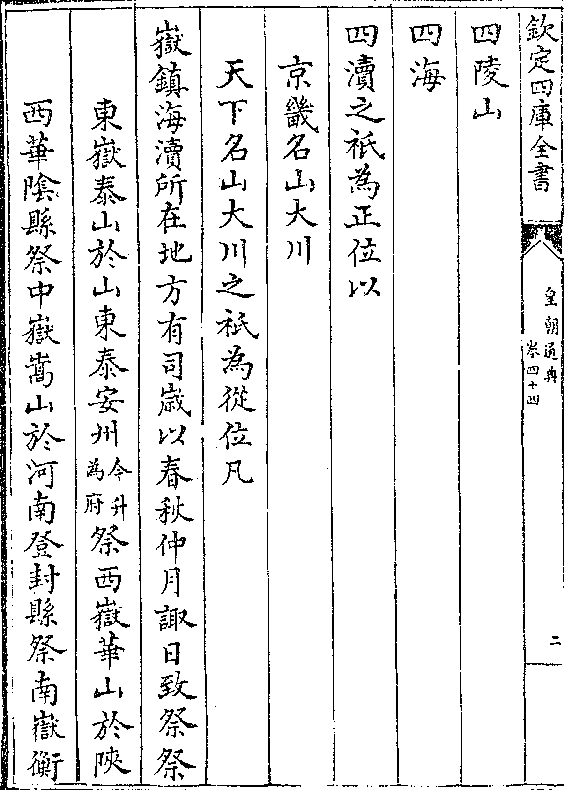 欽定四庫全書
皇朝通典
卷四十四
二
四陵山
四海
四瀆之祇為正位以
京畿名山大川
天下名山大川之祇為從位凡
嶽鎮海瀆所在地方有司歲以春秋仲月諏日致祭祭
東嶽泰山於山東泰安州今升為府祭西嶽華山於陜
西華陰縣祭中嶽嵩山於河南登封縣祭南嶽衡